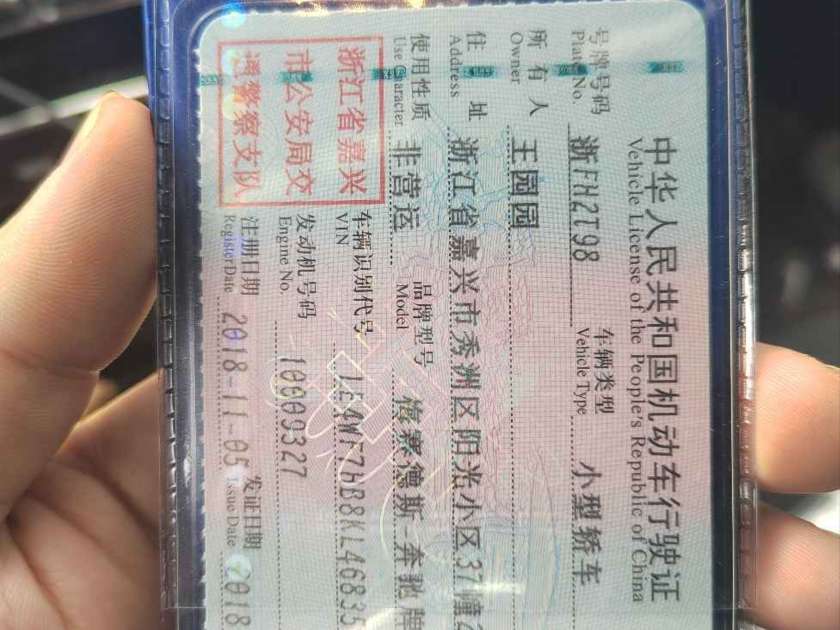 中华人民共和国机动车行驶证
Vehicle License of the People's Republic of China
号牌号码 浙FH2T98 车辆类型 小型轿车
Plate No. Vehicle Type
所有人 王园园
Owner
住址 浙江省嘉兴市秀洲区阳光小区37幢
Address
使用性质 非营运 品牌型号 梅赛德斯-奔驰牌
Use Character Model
浙江省嘉兴
市公安局交
通警察支队
车辆识别代号
VIN
发动机号码 10009327
Engine No.
注册日期 2018-11-05 发证日期 2018
Register Date Issue Date